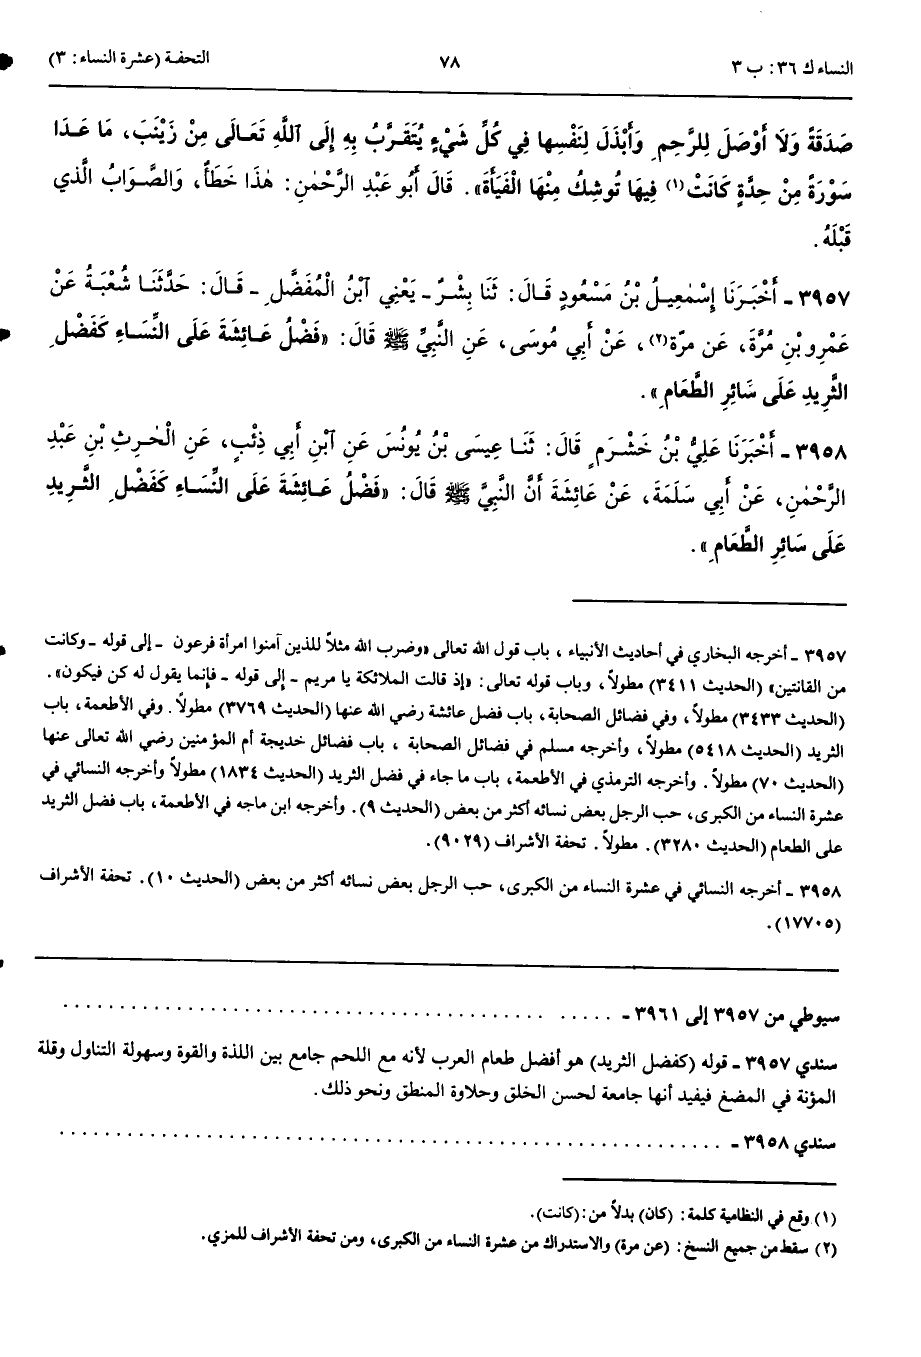 النساء ك ٣٦: ب ٣
٧٨
التحفة (عشرة النساء: ٣)
صَدَقَةً وَلَا أَوْصَلَ لِلرَّحِمِ وَأَبْذَلَ لِنَفْسِها فِي كُلِّ شَيْءٍ يُتَقَرَّبُ بِهِ إِلَى ٱللَّهِ تَعَالَى مِنْ زَيْنَبَ، مَا عَدَا
سَوْرَةً مِنْ حِدَّةٍ كَانَتْ(١) فِيهَا تُوشِكُ مِنْهَا الْفَيْأَةَ». قَالَ أَبُو عَبْدِ الرَّحْمٰنِ: هٰذَا خَطَأٌ، وَالصَّوَابُ الَّذي
قَبْلَهُ.
٣٩٥٧ ـ أَخْبَرَنَا إِسْمٰعِيلُ بْنُ مَسْعُودٍ قَالَ: ثَنَا بِشْرٌ ـ يَعْنِي ٱبْنُ الْمُفَضَّلِ ـ قَالَ: حَدَّثَنَا شُعْبَةُ عَنْ
عَمْرِو بْنِ مُرَّةَ، عَن مرّة(٢)، عَنْ أَبِي مُوسَى، عَنِ النَّبِيِّ ﷺ قَالَ: «فَضْلُ عَائِشَةَ عَلَى النِّسَاءِ كَفَضْلِ
الثَّرِيدِ عَلَى سَائِرِ الطَّعَامِ».
٣٩٥٨ ـ أَخْبَرَنَا عَلِيُّ بْنُ خَشْرَمٍ قَالَ: ثَنَا عِيسَى بْنُ يُونُسَ عَنِ ٱبْنِ أَبِي ذِئْبٍ، عَنِ الْحٰرِثِ بْنِ عَبْدِ
الرَّحْمٰنِ، عَنْ أَبِي سَلَمَةَ، عَنْ عَائِشَةَ أَنَّ النَّبِيَّ ﷺ قَالَ: «فَضْلُ عَائِشَةَ عَلَى النِّسَاءِ كَفَضْلِ الثَّرِيدِ
عَلَى سَائِرِ الطَّعَامِ».
٣٩٥٧ ـ أخرجه البخاري في أحاديث الأنبياء ، باب قول الله تعالى «وضرب الله مثلاً للذين آمنوا امرأة فرعون ـ إلى قوله ـ وكانت
من القانتين» (الحديث ٣٤١١) مطولاً، وباب قوله تعالى: «إذ قالت الملائكة يا مريم ـ إلى قوله ـ فإنما يقول له كن فيكون».
(الحديث ٣٤٣٣) مطولاً، وفي فضائل الصحابة، باب فضل عائشة رضي الله عنها (الحديث ٣٧٦٩) مطولاً. وفي الأطعمة، باب
الثريد (الحديث ٥٤١٨) مطولاً، وأخرجه مسلم في فضائل الصحابة ، باب فضائل خديجة أم المؤمنين رضي الله تعالى عنها
(الحديث ٧٠) مطولاً. وأخرجه الترمذي في الأطعمة، باب ما جاء في فضل الثريد (الحديث ١٨٣٤) مطولاً وأخرجه النسائي في
عشرة النساء من الكبرى، حب الرجل بعض نسائه أكثر من بعض (الحديث ٩). وأخرجه ابن ماجه في الأطعمة، باب فضل الثريد
على الطعام (الحديث ٣٢٨٠). مطولاً. تحفة الأشراف (٩٠٢٩).
٣٩٥٨ ـ أخرجه النسائي في عشرة النساء من الكبرى، حب الرجل بعض نسائه أكثر من بعض (الحديث ١٠). تحفة الأشراف
(١٧٧٠٥).
سيوطي من ٣٩٥٧ إلى ٣٩٦١ ـ . . . . . . . . . . . . . . . . . . . . . . . . . . . . . .
سندي ٣٩٥٧ ـ قوله (كفضل الثريد) هو أفضل طعام العرب لأنه مع اللحم جامع بين اللذة والقوة وسهولة التناول وقلة
المؤنة في المضغ فيفيد أنها جامعة لحسن الخلق وحلاوة المنطق ونحو ذلك.
سندي ٣٩٥٨ ـ . . . . . . . . . . . . . . . . . . . . . . . . . . . . . .
(١) وقع في النظامية كلمة: (كان) بدلاً من: (كانت).
(٢) سقط من جميع النسخ: (عن مرة) والاستدراك من عشرة النساء من الكبرى، ومن تحفة الأشراف للمزي.